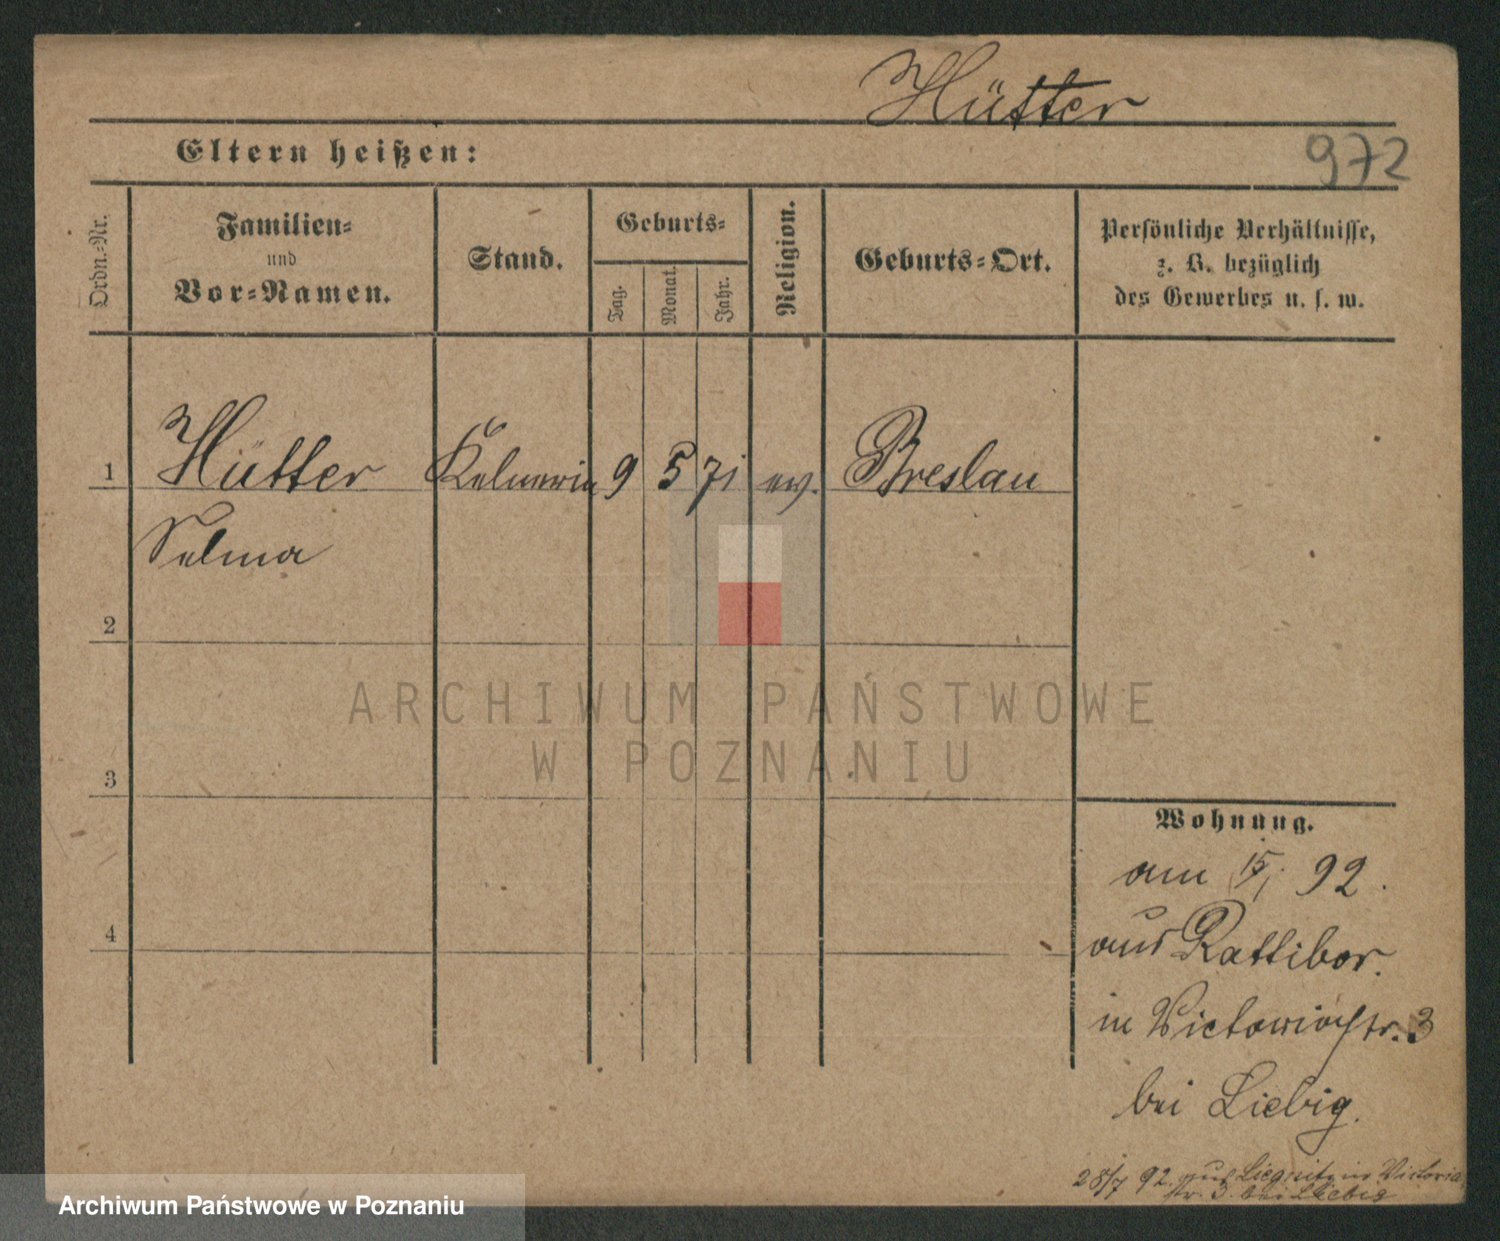 Hütter
972
Eltern heißen:
Ordn.-Nr.
Familien-
und
Vor-Namen.
Stand.
Geburts-
Tag.
Monat.
Jahr.
Religion.
Geburts-Ort.
Persönliche Verhältnisse,
z. B. bezüglich
des Gewerbes u. s. w.
1
Hütter Kelnerin 9 5 71 ev. Breslau
Selma
2
ARCHIWUM PAŃSTWOWE
W POZNANIU
3
Wohnung.
am 92.
4
aus Rattibor.
in Victoriastr. 3
bei Liebig.
28/7 92. aus Liegnitz in Victoria
str. 3. bei Liebig
Archiwum Państwowe w Poznaniu